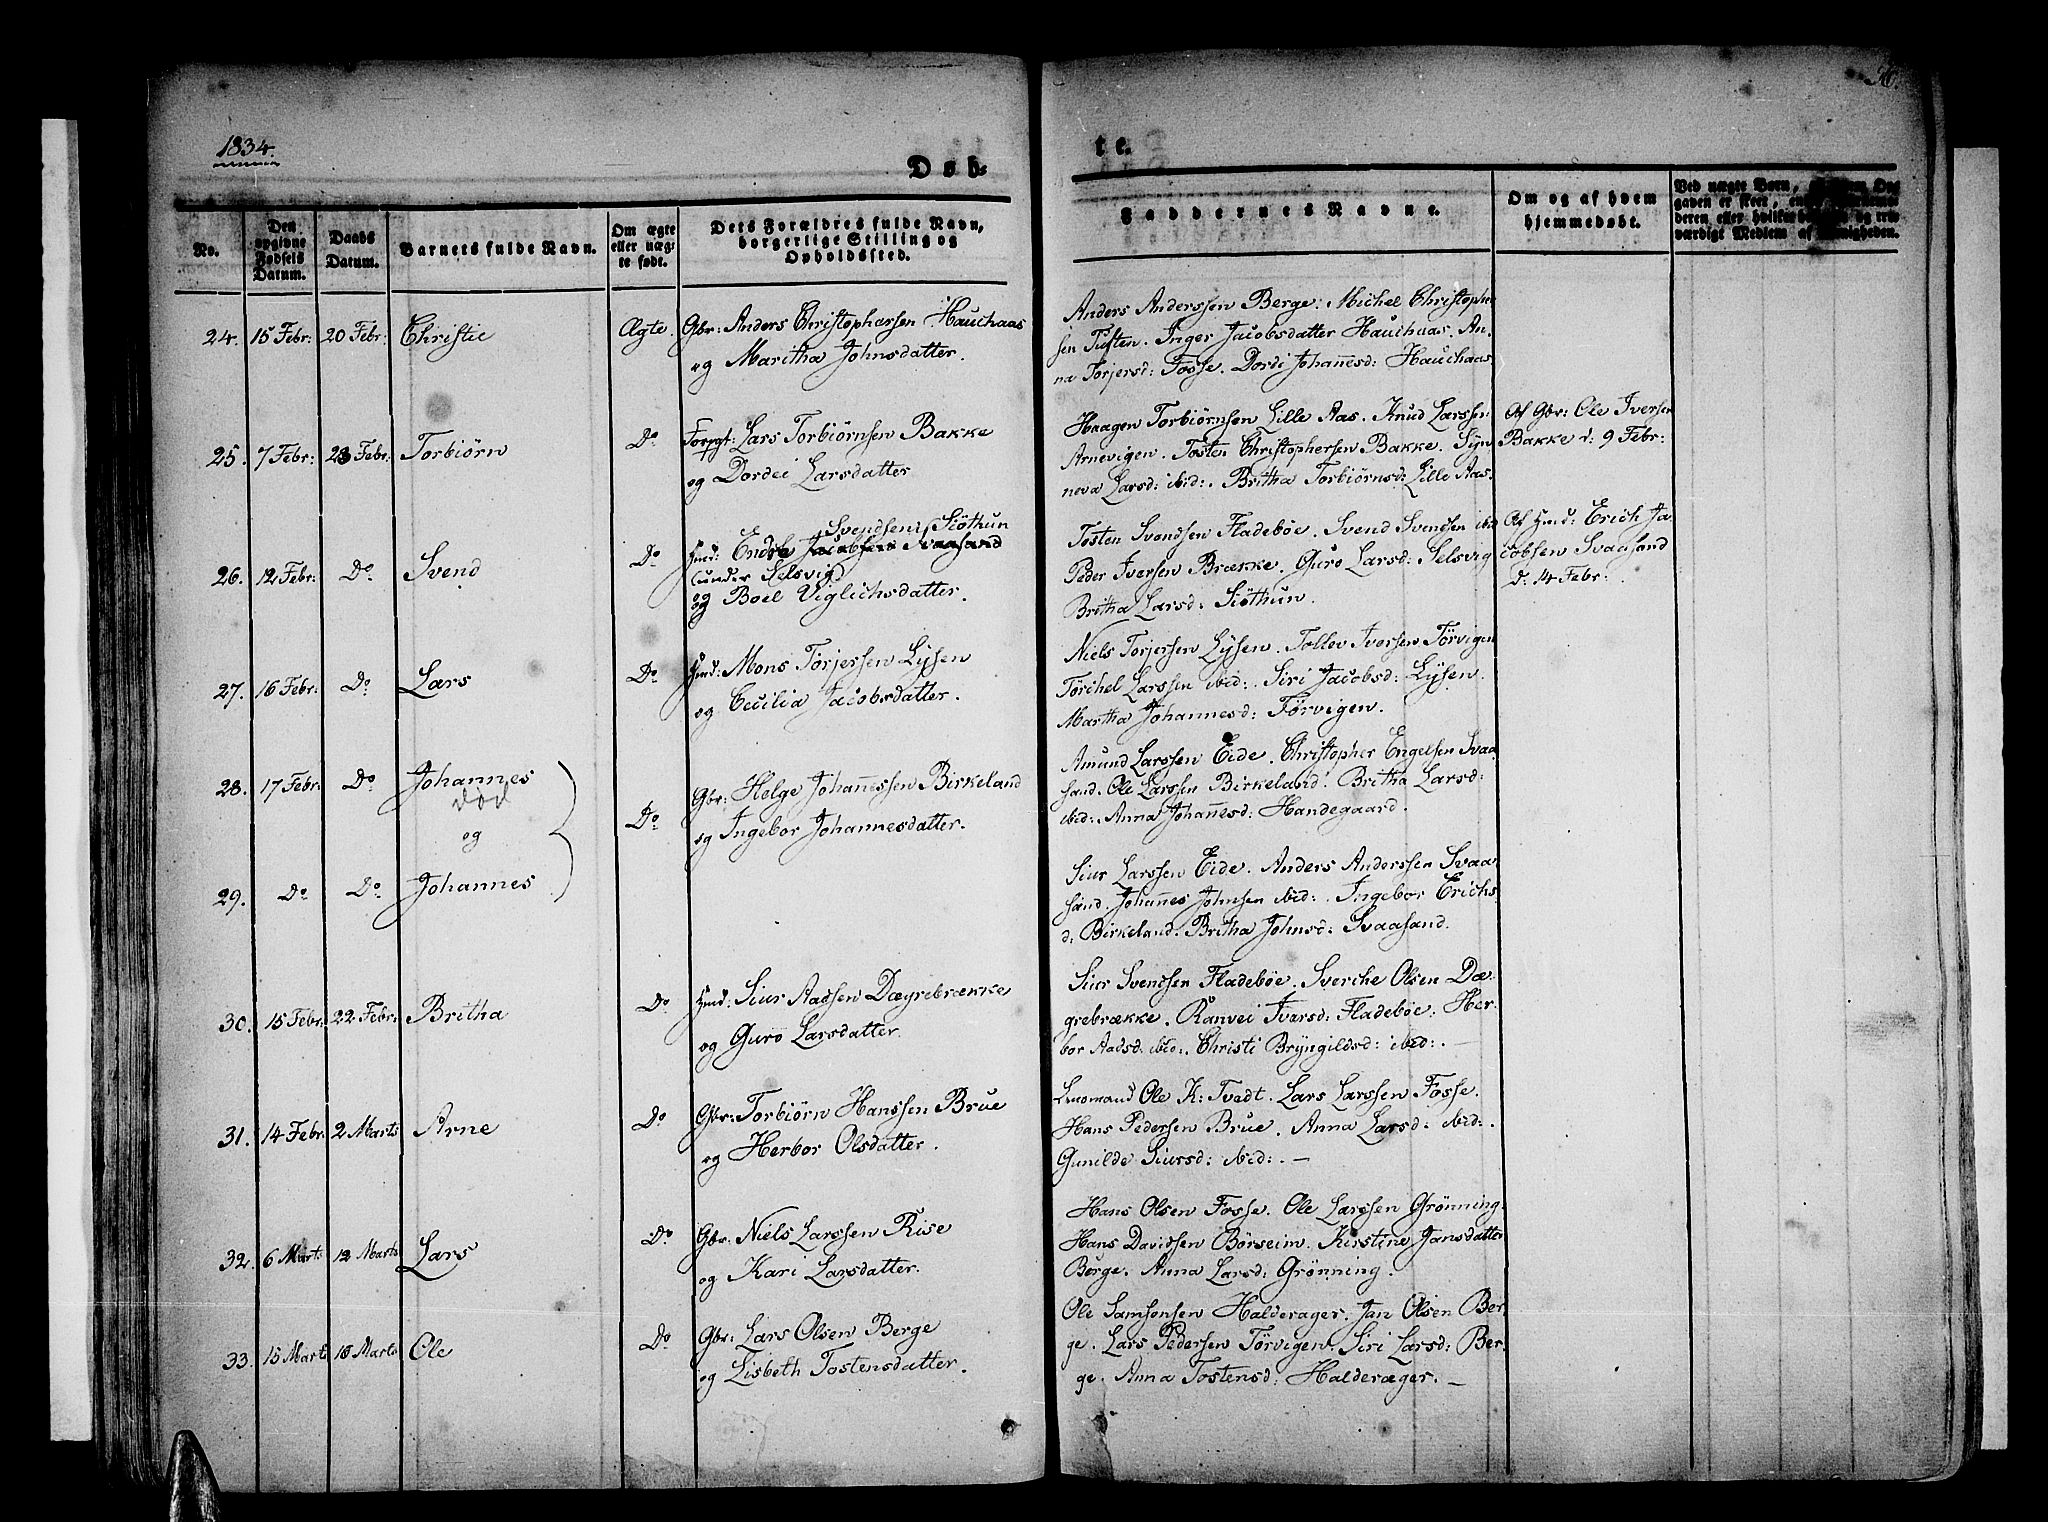 1834.
Døb-
No.
Den opgivne Fødsels Datum.
Daabs Datum.
Barnets fulde Navn.
Om ægte eller uægte født.
Dets Forældres fulde Navn, borgerlige Stilling og Opholdssted.
24. 15 Febr: 20 Febr: Christie Ægte. Gbr: Anders Christophersen Hauchaas
og Maritha Johnsdatter.
25. 7 Febr: 23 Febr: Torbiörn Do Forpgt: Lars Torbiörnsen Bakke
og Dordei Larsdatter
26. 12 Febr: Do Svend Do Hmd: Endre Svendsen Siöthun
(under Selsvig)
og Boel Viglichsdatter.
27. 16 Febr: Do Lars Do Hmd: Mons Torjersen Lysen
og Cecilia Jacobsdatter.
28. 17 Febr: Do Johannes Do Gbr: Helge Johannessen Birkeland
død
og
og Ingebor Johannesdatter.
29. Do Do Johannes
30. 15 Febr: 22 Febr: Britha Do Hmd: Siur Aadsen Dægrebrække
og Guro Larsdatter.
31. 14 Febr: 2 Marts Arne Do Gbr: Torbiörn Hanssen Brue
og Herbor Olsdatter.
32. 6 Mart: 12 Marts Lars Do Gbr: Niels Larssen Rise
og Kari Larsdatter.
33. 15 Marts 18 Marts Ole Do Gbr: Lars Olsen Berge
og Lisbeth Tostensdatter.
te.
Faddernes Navne.
Om og af hvem hjemmedøbt.
Ved uægte Børn,
Anders Anderssen Berge. Michel Christopher
sen Tuften. Inger Jacobsdatter Hauchaas. An-
na Torjersd: Fosse. Dordi Johannesd: Hauchaas
Haagen Torbiörnsen Lille Aas. Knud Larssen
Arnevigen. Tosten Christophersen Bakke. Syn-
neva Larsd: ibid:. Britha Torbiörnsd: Lille Aas.
Af Gbr: Ole Iversen
Bakke d: 9 Febr:
Tosten Svendsen Fladeböe. Svend Svendsen ibid
Peder Iversen Brække. Guro Larsd: Selsvig
Britha Larsd: Siöthun.
Af Hmd: Erich Ja-
cobsen Svaasand
D: 14 Febr:
Niels Torjersen Lysen. Tollev Iversen Törvigen
Törchel Larssen ibid:. Siri Jacobsd: Lysen.
Martha Johannesd: Törvigen.
Amund Larssen Eide. Christopher Engelsen Svaa
sand. Ole Larssen Birkeland. Britha Larsd:
ibid:. Anna Johannesd: Handegaard.
Siur Larssen Eide. Anders Anderssen Svaa-
sand. Johannes Johnsen ibid:. Ingebor Erichs
d: Birkeland. Britha Johnsd: Svaasand.
Siur Svendsen Fladeböe. Sverche Olsen Dæ-
grebrække. Ranvei Ivarsd: Fladeböe. Her-
bor Aadsd. ibid:. Christi Bryngildsd: ibid:. —
Ole K: Tvedt. Lars Larssen Fosse.
Hans Pedersen Brue. Anna Larsd: ibid:.
Gunilde Siursd: ibid:. —
Hans Olsen Fosse. Ole Larssen Grönning.
Hans Davidsen Börseim. Kirstine Jansdatter
Berge. Anna Larsd: Grönning.
Ole Samsonsen Halderager. Jan Olsen Ber-
ge. Lars Pedersen Törvigen. Siri Larsd: Ber-
ge. Anna Tostensd: Halderæger. —